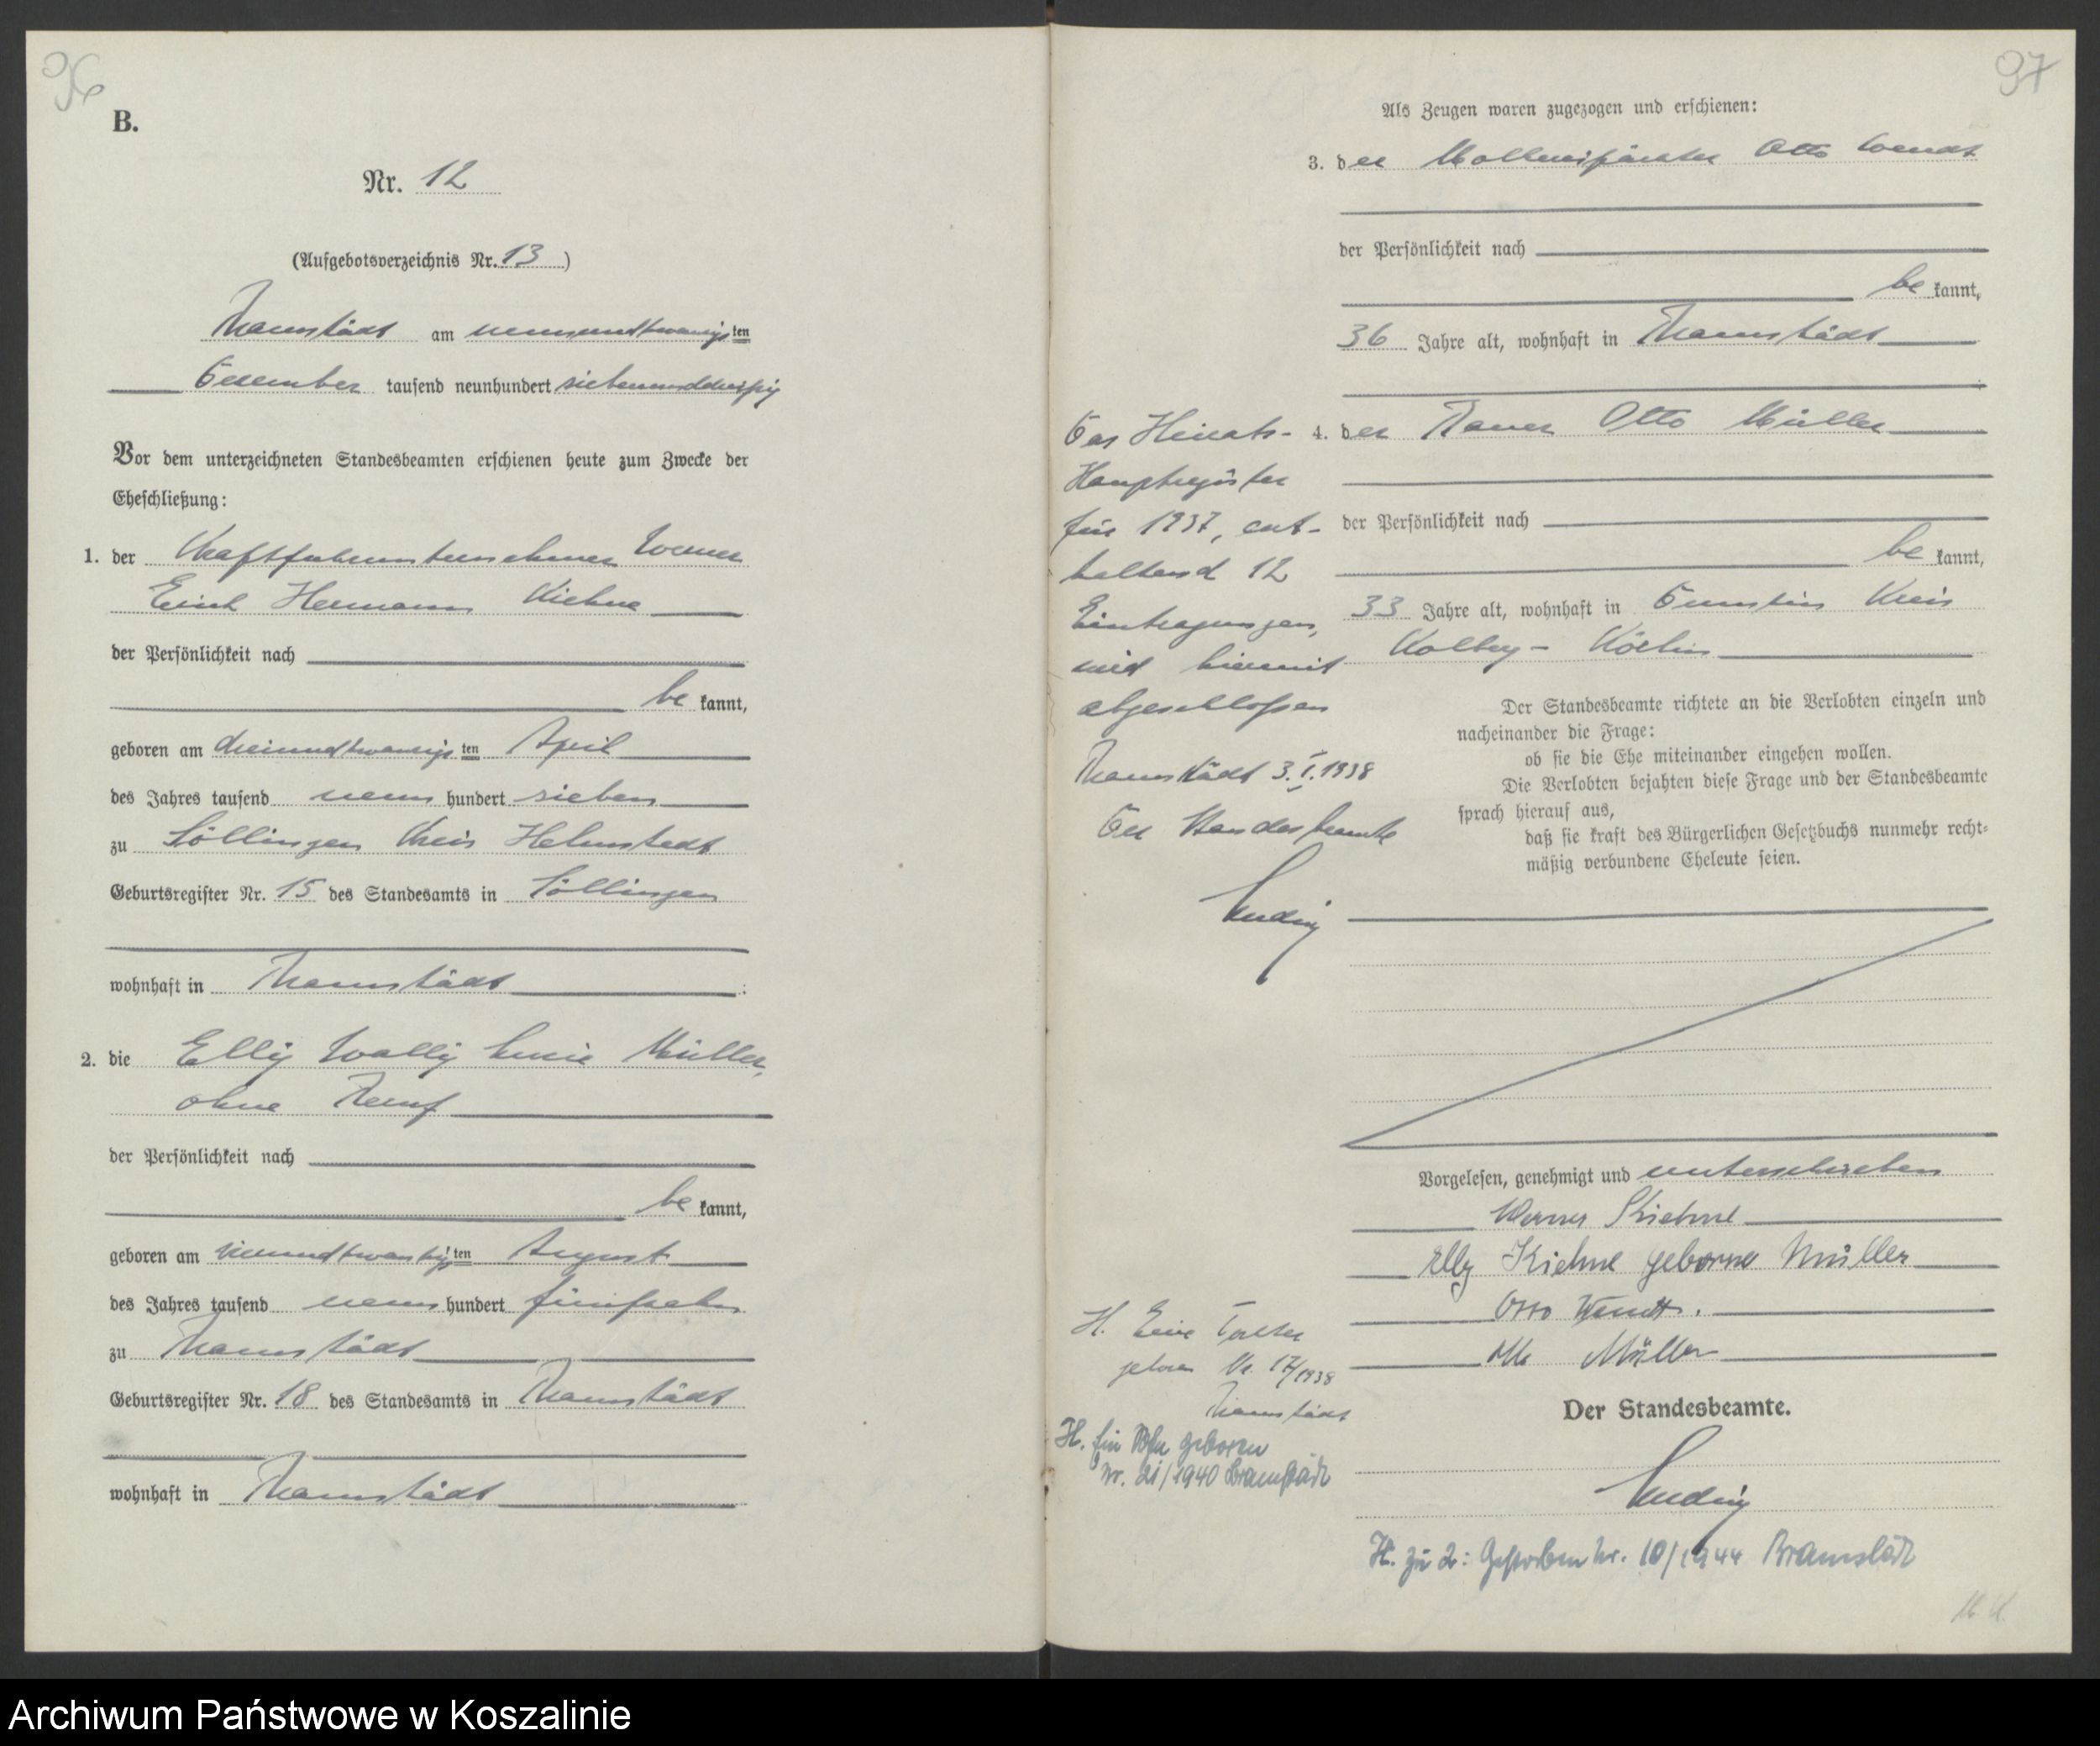 96
B.
Nr. 12
(Aufgebotsverzeichnis Nr. 13)
Bramstädt am neunundzwanzigsten
Dezember tausend neunhundert siebenunddreißig
Vor dem unterzeichneten Standesbeamten erschienen heute zum Zwecke der
Eheschließung:
1. der Kraftfuhrunternehmer Werner
Erich Hermann Kiehne
der Persönlichkeit nach
be kannt,
geboren am dreiundzwanzigsten April
des Jahres tausend neun hundert sieben
zu Söllingen Kreis Helmstedt
Geburtsregister Nr. 15 des Standesamts in Söllingen
wohnhaft in Bramstädt
2. die Elly Wally Müller,
ohne Beruf
der Persönlichkeit nach
be kannt,
geboren am vierundzwanzigsten August
des Jahres tausend neun hundert fünfzehn
zu Bramstädt
Geburtsregister Nr. 18 des Standesamts in Bramstädt
wohnhaft in Bramstädt
97
Als Zeugen waren zugezogen und erschienen:
3. der Molkereipächter Otto Wendt
der Persönlichkeit nach
be kannt,
36 Jahre alt, wohnhaft in Bramstädt
4. der Bauer Otto Müller
der Persönlichkeit nach
be kannt,
33 Jahre alt, wohnhaft in Kreis
Kolberg-Körlin
Der Standesbeamte richtete an die Verlobten einzeln und
nacheinander die Frage:
ob sie die Ehe miteinander eingehen wollen.
Die Verlobten bejahten diese Frage und der Standesbeamte
sprach hierauf aus,
daß sie kraft des Bürgerlichen Gesetzbuchs nunmehr recht-
mäßig verbundene Eheleute seien.
Das Heirats-
Hauptregister
für 1937, ent-
haltend 12
Eintragungen,
wird hiermit
abgeschlossen
Bramstädt 3.I.1938
Der Standesbeamte
Vorgelesen, genehmigt und unterschrieben
Werner Kiehne
Elly Kiehne geborne Müller
Otto Wendt.
Otto Müller
Der Standesbeamte.
H. Eine Tochter
geboren Nr. 17/1938
Bramstädt
H. Ein Sohn geboren
Nr. 21/1940 Bramstädt
H. zu 2: Gestorben Nr. 10/1944 Bramstädt
Archiwum Państwowe w Koszalinie